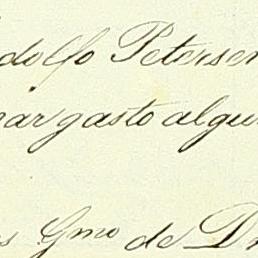 dolfo Petersen
nar gasto algun
s Gmo de D